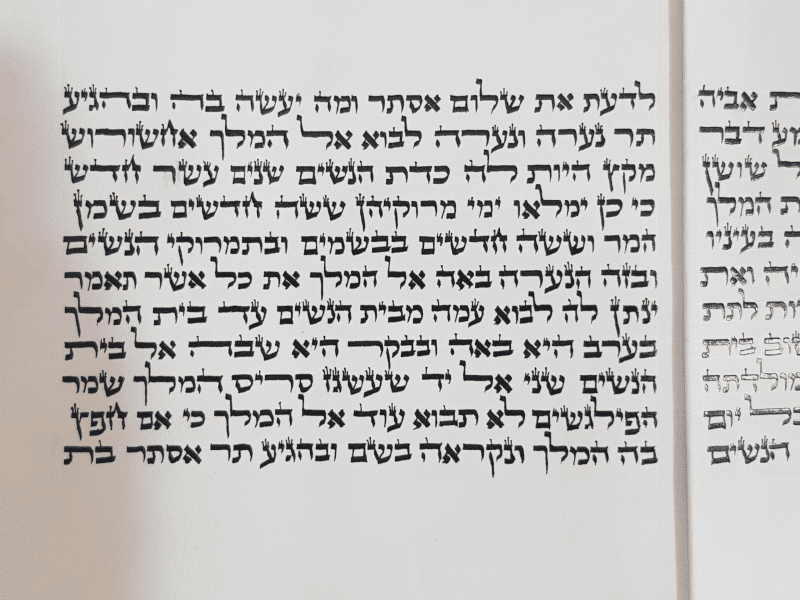 אביה
דבר
שושן
המלך
בעיניו
ואת
לתת
בית
מולדתה
יום
הנשים
לדעת את שלום אסתר ומה יעשה בה ובהגיע
תר נערה ונערה לבוא אל המלך אחשורוש
מקץ היות לה כדת הנשים שנים עשר חדש
כי כן ימלאו ימי מרוקיהן ששה חדשים בשמן
המר וששה חדשים בבשמים ובתמרוקי הנשים
ובזה הנערה באה אל המלך את כל אשר תאמר
ינתן לה לבוא עמה מבית הנשים עד בית המלך
בערב היא באה ובבקר היא שבה אל בית
הנשים שני אל יד שעשגז סריס המלך שמר
הפילגשים לא תבוא עוד אל המלך כי אם חפץ
בה המלך ונקראה בשם ובהגיע תר אסתר בת